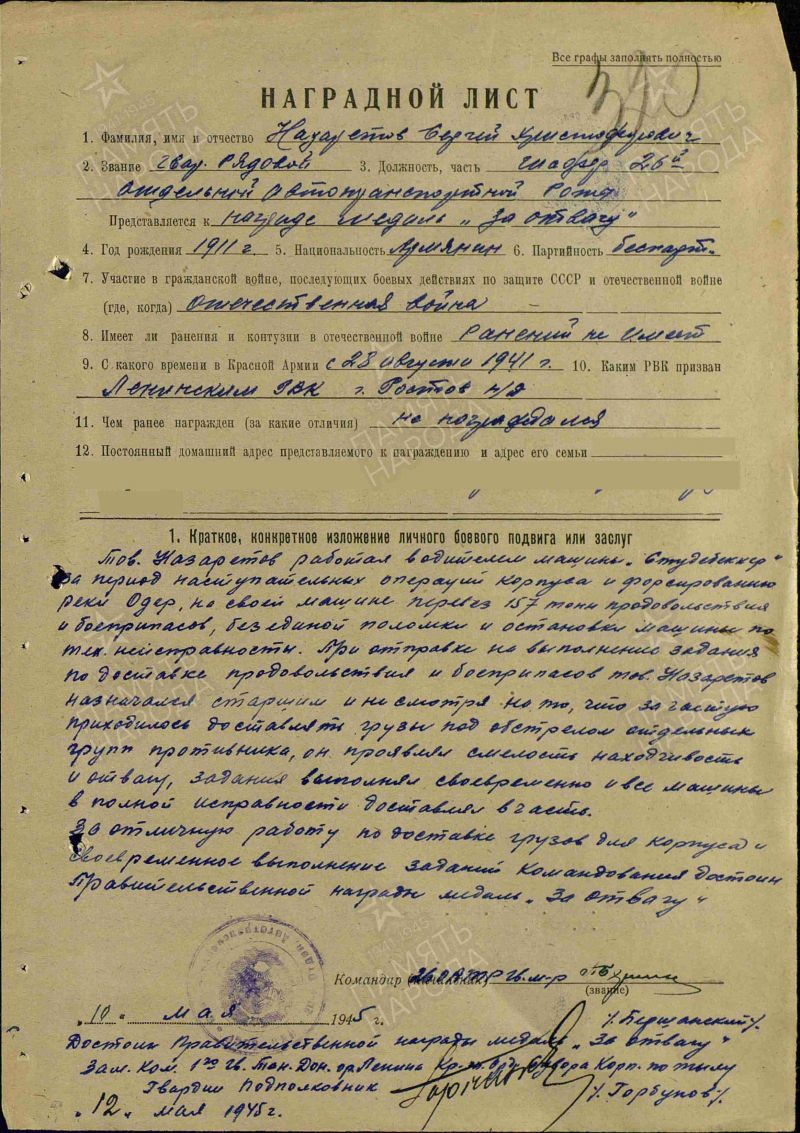 Все графы заполнять полностью
НАГРАДНОЙ ЛИСТ
1. Фамилия, имя и отчество Назаретов Сергей Христофорович
2. Звание гвар. Рядовой 3. Должность, часть шофер 26й
отдельной автотранспортной Роты
Представляется к награде медаль „За отвагу"
4. Год рождения 1911 г. 5. Национальность Армянин 6. Партийность беспарт.
7. Участие в гражданской войне, последующих боевых действиях по защите СССР и отечественной войне
(где, когда) Отечественная война
8. Имеет ли ранения и контузии в отечественной войне Ранений не имеет
9. С какого времени в Красной Армии с 28 августа 1941 г. 10. Каким РВК призван
Ленинским РВК г. Ростов н/Д
11. Чем ранее награжден (за какие отличия) не награждался
12. Постоянный домашний адрес представляемого к награждению и адрес его семьи
1. Краткое, конкретное изложение личного боевого подвига или заслуг
Тов. Назаретов работая водителем машины „Студебеккер"
за период наступательных операций корпуса и форсированию
реки Одер, на своей машине перевез 157 тонн продовольствия
и боеприпасов, без единой поломки и остановки машины по
тех. неисправности. При отправке на выполнение задания
по доставке продовольствия и боеприпасов тов. Назаретов
назначался старшим и не смотря на то, что за частую
приходилось доставлять грузы под обстрелом отдельных
групп противника, он проявлял смелость находчивость
и отвагу, задания выполнял своевременно и все машины
в полной исправности доставлял в часть.
За отличную работу по доставке грузов для корпуса и
своевременное выполнение заданий Командования достоин
Правительственной награды медаль „За отвагу"
Командир 26 ОАТР гв. м-р
(звание)
„10" мая 1945 г. /Бершанский/.
Достоин Правительственной награды медаль „За отвагу"
Зам. Ком. 1го Гв. Тан. Дон. ор. Ленина Кр. зн. Орд. Суворова Корп. по тылу
Гвардии Подполковник /Горбунов/
„12" мая 1945г.